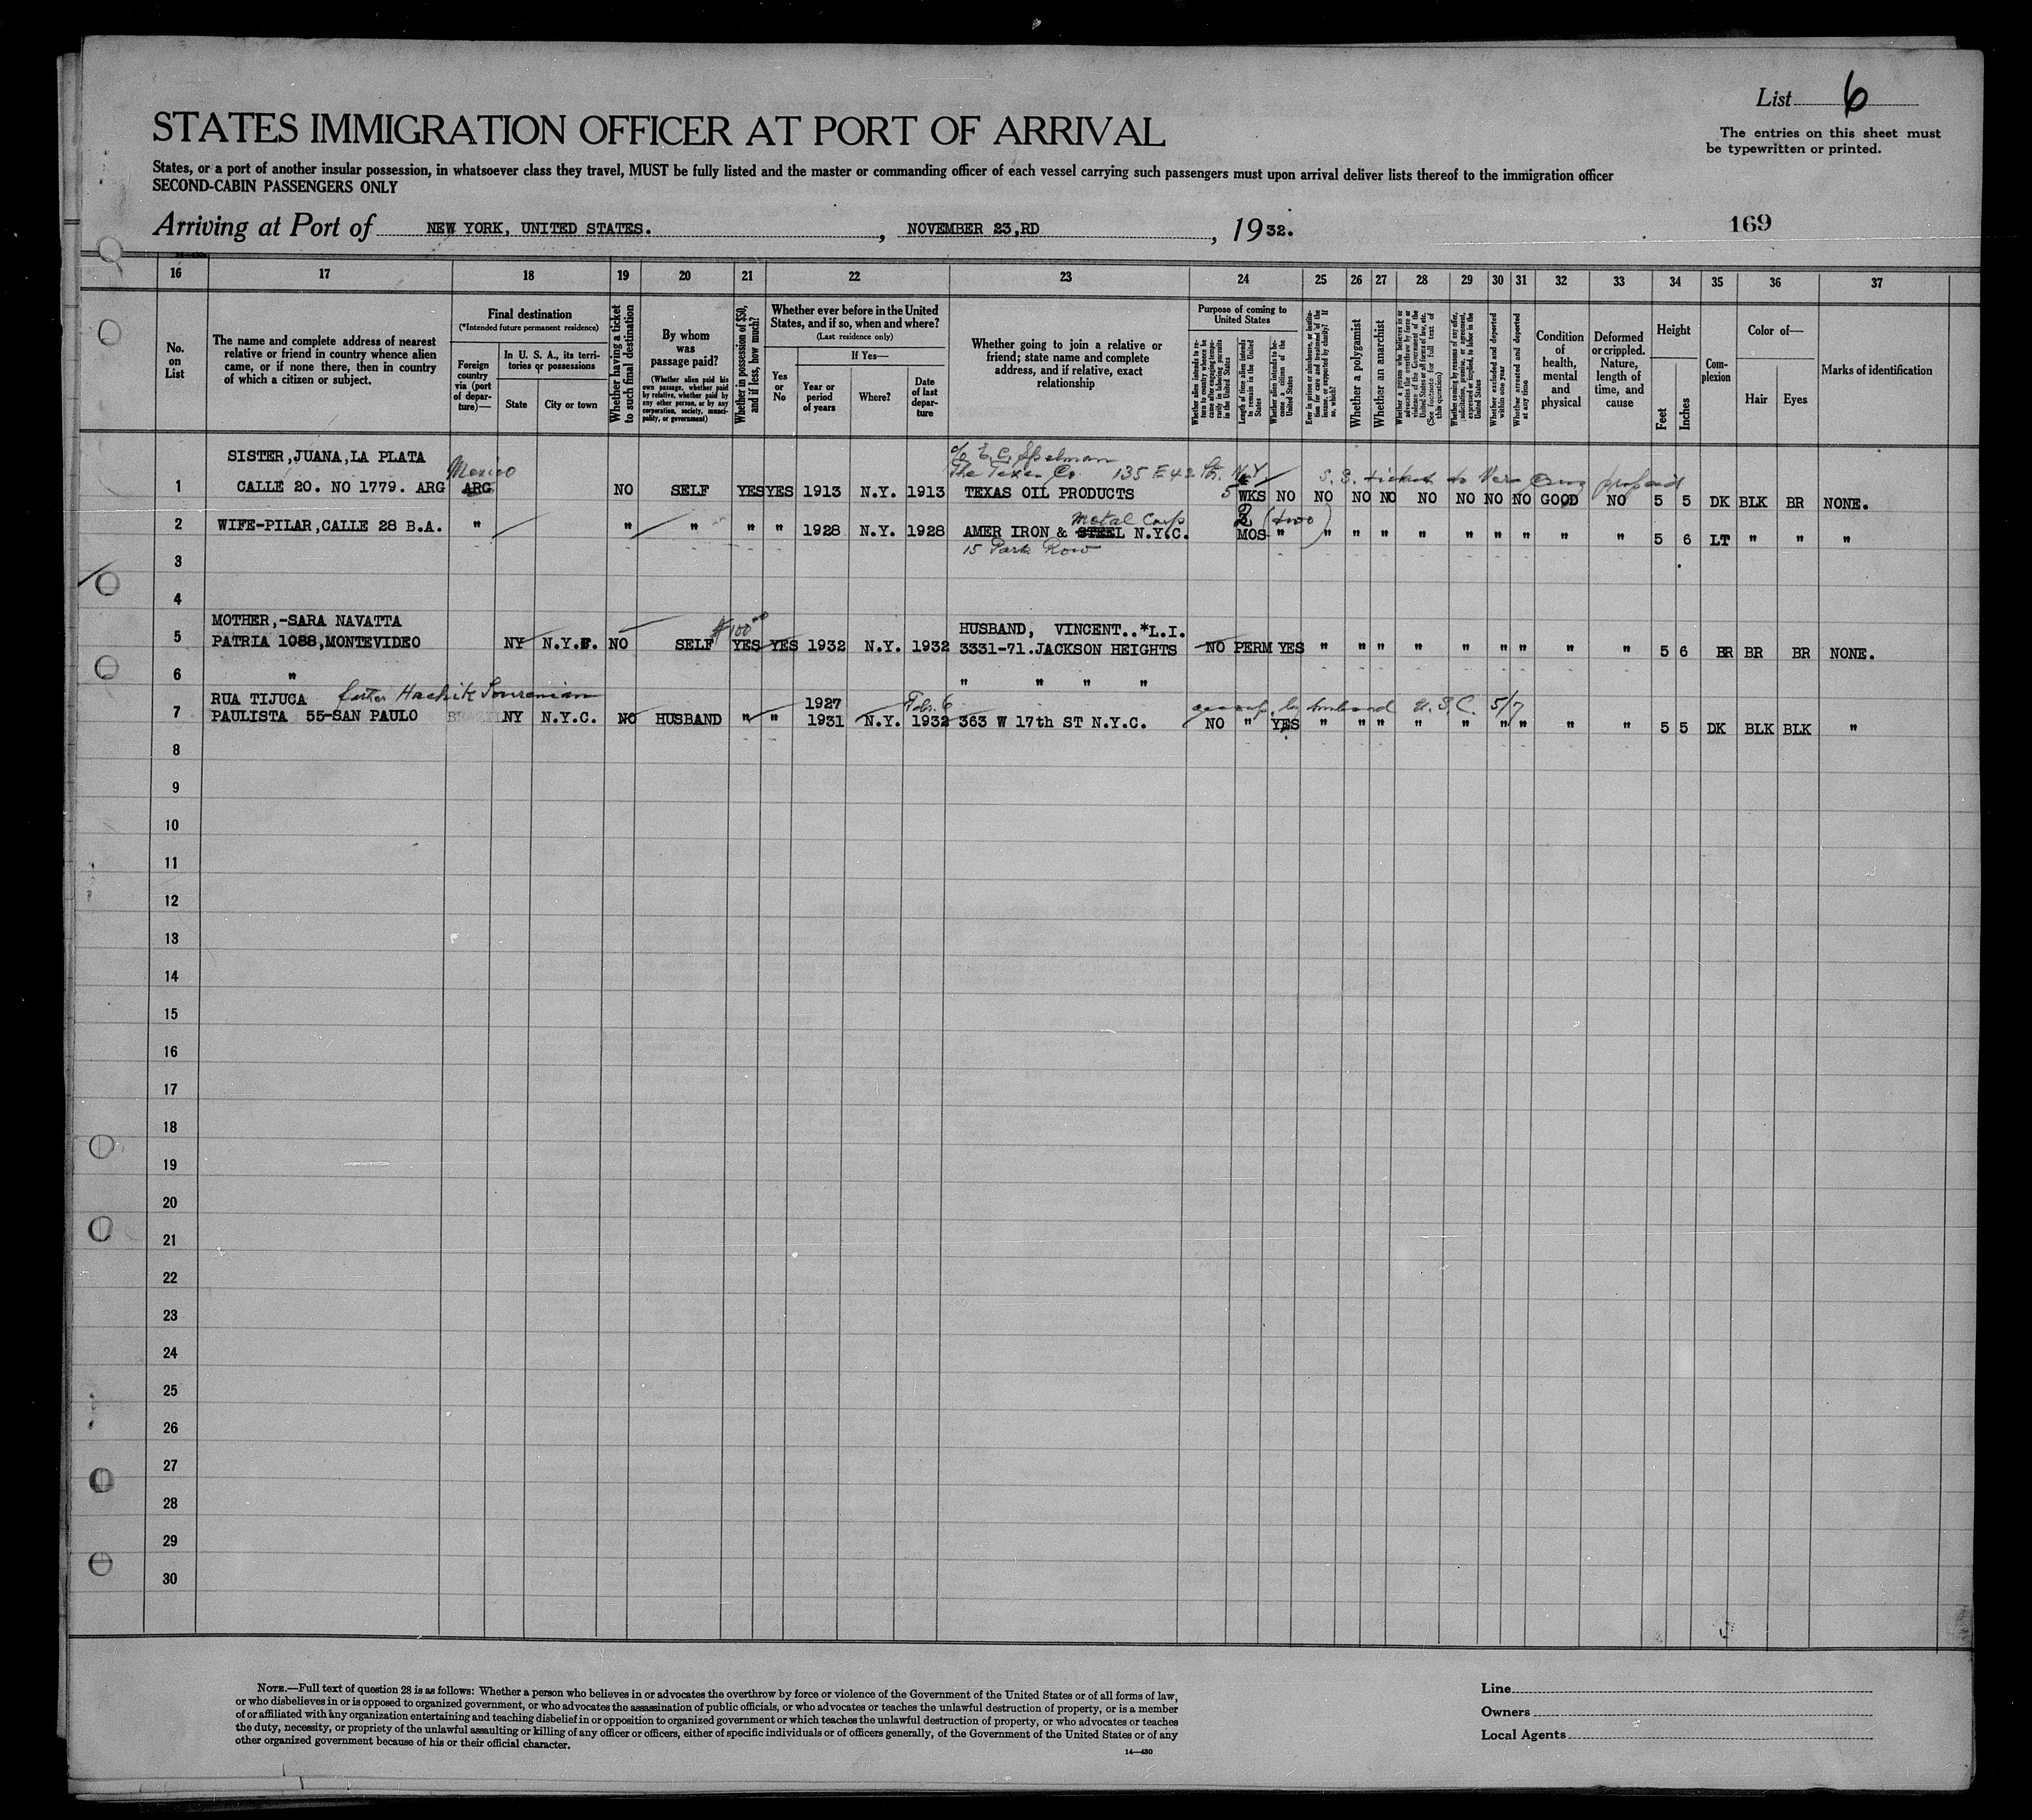 List 6
STATES IMMIGRATION OFFICER AT PORT OF ARRIVAL
The entries on this sheet must
be typewritten or printed.
States, or a port of another insular possession, in whatsoever class they travel, MUST be fully listed and the master or commanding officer of each vessel carrying such passengers must upon arrival deliver lists thereof to the immigration officer
SECOND-CABIN PASSENGERS ONLY
Arriving at Port of NEW YORK, UNITED STATES. , NOVEMBER 23,RD , 1932.
169
16 17 18 19 20 21 22 23 24 25 26 27 28 29 30 31 32 33 34 35 36 37
No. on List
The name and complete address of nearest relative or friend in country whence alien came, or if none there, then in country of which a citizen or subject.
Final destination
(*Intended future permanent residence)
Foreign country via (port of departure)—
In U. S. A., its territories or possessions
State
City or town
Whether having a ticket to such final destination
By whom was passage paid?
(Whether alien paid his own passage, whether paid by relative, whether paid by any other person, or by any corporation, society, municipality, or government)
Whether in possession of $50, and if less, how much?
Whether ever before in the United States, and if so, when and where?
(Last residence only)
Yes or No
If Yes—
Year or period of years
Where?
Date of last departure
Whether going to join a relative or friend; state name and complete address, and if relative, exact relationship
Purpose of coming to United States
Length of time alien intends to remain in the United States
Whether alien intends to become a citizen of the United States
Whether a polygamist
Whether an anarchist
(See footnote for full text of this question)
Whether excluded and deported within one year
Whether arrested and deported at any time
Condition of health, mental and physical
Deformed or crippled. Nature, length of time, and cause
Height
Feet
Inches
Complexion
Color of—
Hair
Eyes
Marks of identification
SISTER,JUANA,LA PLATA Mexico c/o E. C. Spelman
The Texas Co. 135 E 42 St. N.Y. S.S. ticket to Vera Cruz prepaid
1 CALLE 20. NO 1779. ARG ARG NO SELF YES YES 1913 N.Y. 1913 TEXAS OIL PRODUCTS 5 WKS NO NO NO NO NO NO NO NO GOOD NO 5 5 DK BLK BR NONE.
Metal Corp 2 (two)
2 WIFE-PILAR,CALLE 28 B.A. " " " " " 1928 N.Y. 1928 AMER IRON & STEEL N.Y.C. MOS " " " " " " " " " " 5 6 LT " " "
15 Park Row
3
4
MOTHER,-SARA NAVATTA $100 00 HUSBAND, VINCENT..*L.I.
5 PATRIA 1088,MONTEVIDEO NY N.Y. NO SELF YES YES 1932 N.Y. 1932 3331-71.JACKSON HEIGHTS NO PERM YES " " " " " " " " " 5 6 BR BR BR NONE.
6 " " " " "
RUA TIJUCA Hachik Sourenian 1927 Feb. 6 accomp. by husband U.S.C. 5/7
7 PAULISTA 55-SAN PAULO BRAZIL NY N.Y.C. NO HUSBAND " " 1931 N.Y. 1932 363 W 17th ST N.Y.C. NO " YES " " " " " " " " " 5 5 DK BLK BLK "
8
9
10
11
12
13
14
15
16
17
18
19
20
21
22
23
24
25
26
27
28
29
30
NOTE.—Full text of question 28 is as follows: Whether a person who believes in or advocates the overthrow by force or violence of the Government of the United States or of all forms of law,
or who disbelieves in or is opposed to organized government, or who advocates the assassination of public officials, or who advocates or teaches the unlawful destruction of property, or is a member
of or affiliated with any organization entertaining and teaching disbelief in or opposition to organized government or which teaches the unlawful destruction of property, or who advocates or teaches
the duty, necessity, or propriety of the unlawful assaulting or killing of any officer or officers, either of specific individuals or of officers generally, of the Government of the United States or of any
other organized government because of his or their official character.
14—430
Line
Owners
Local Agents